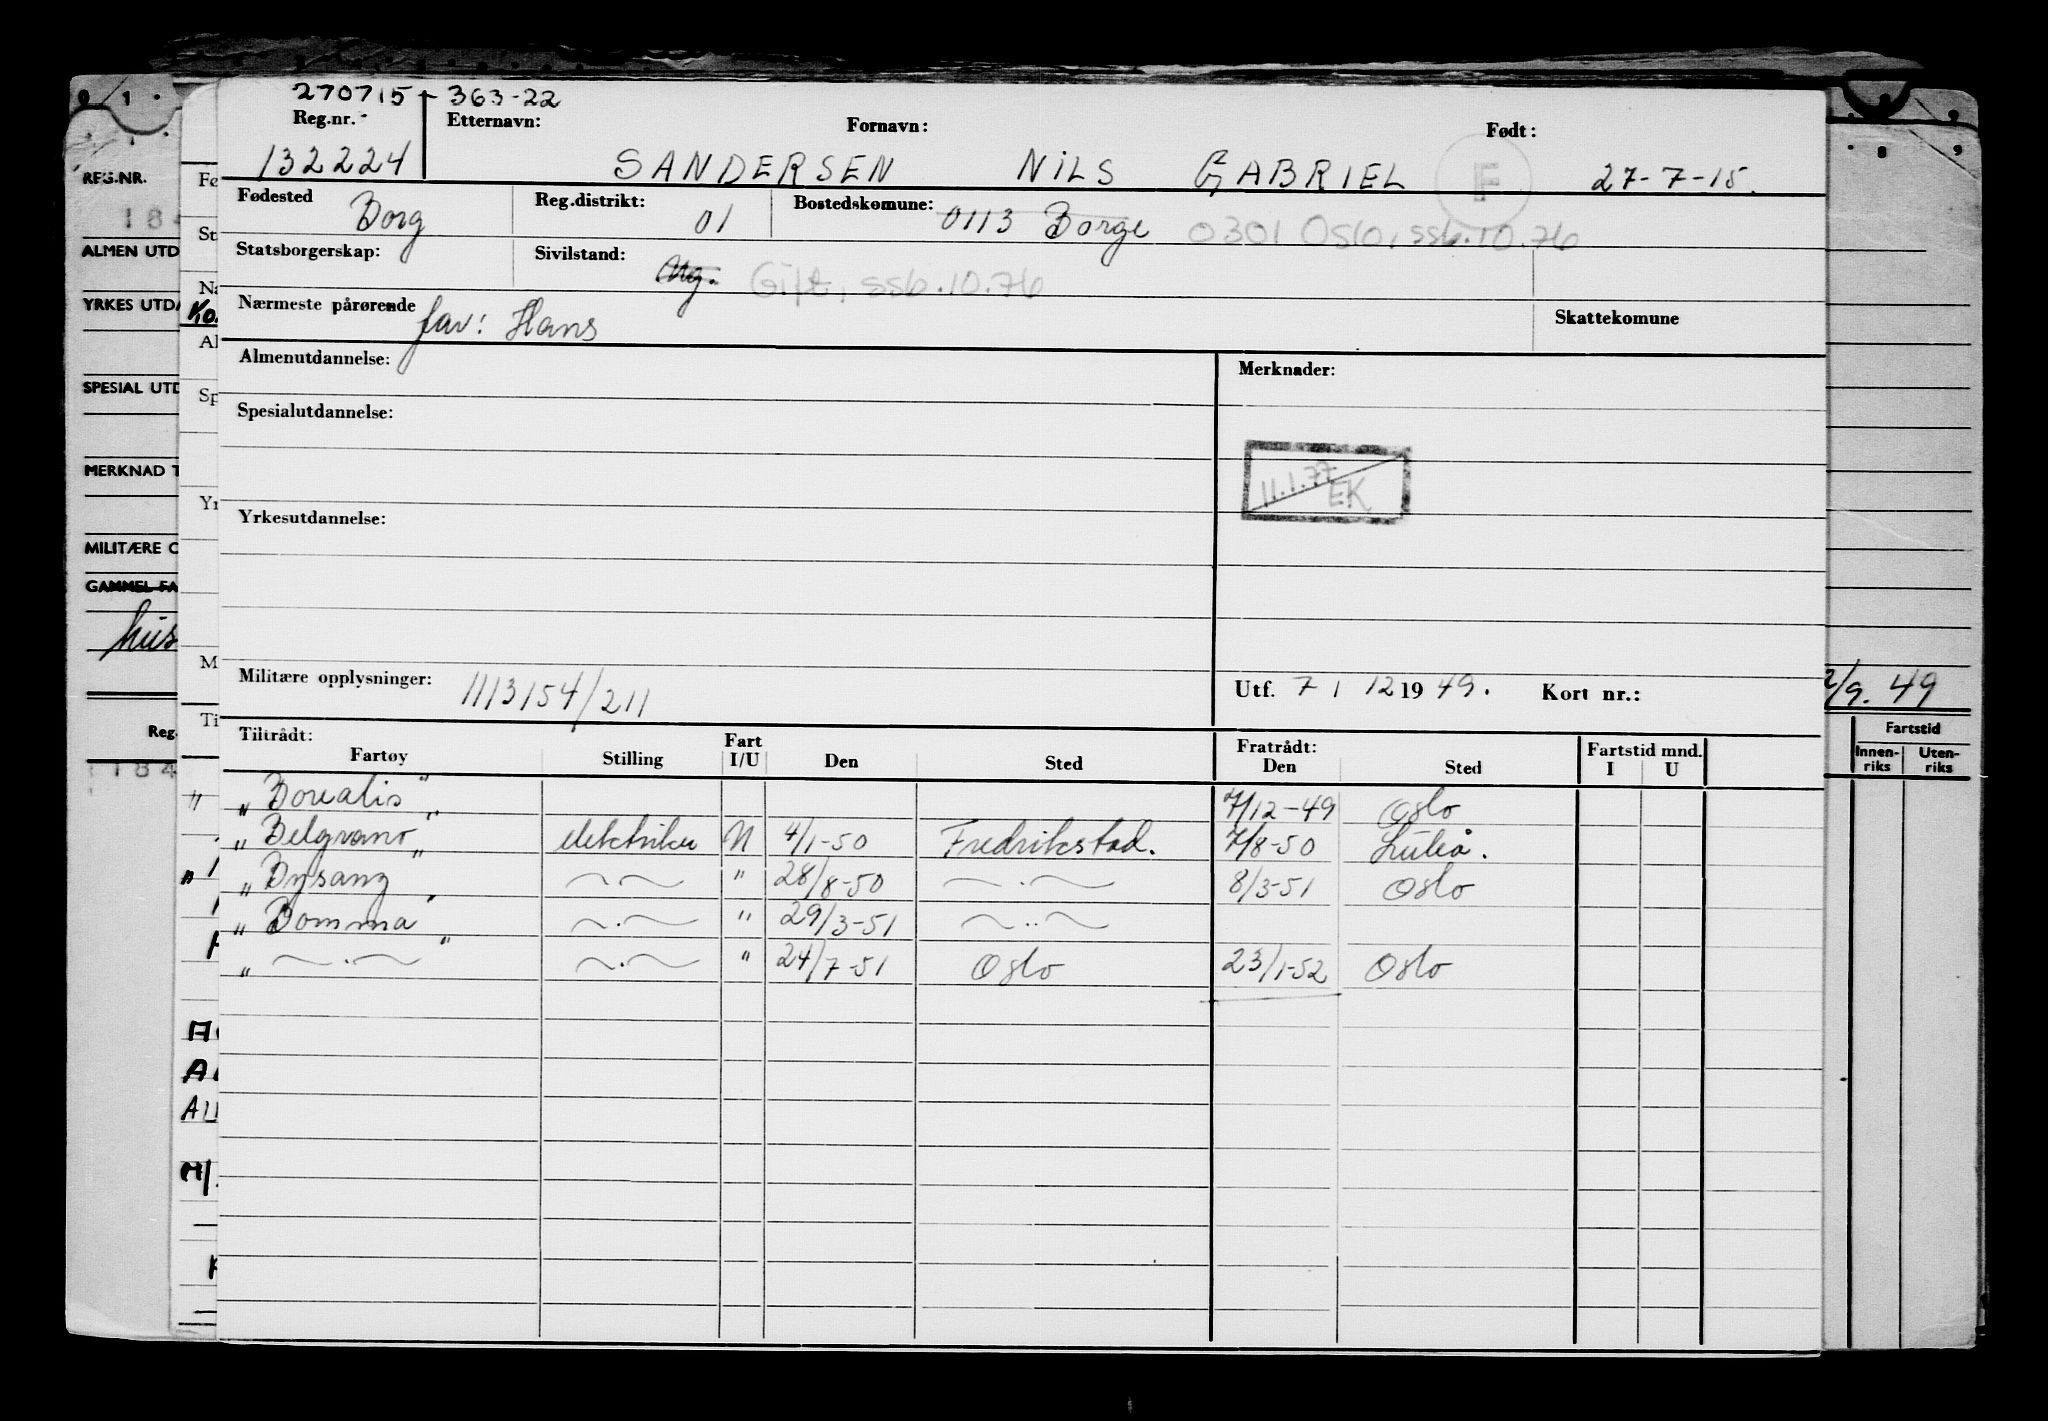 270715-363-22
Reg.nr. Etternavn: Fornavn: Født:
132224 SANDERSEN NILS GABRIEL F 27-7-15.
Fødested Borg Reg.distrikt: 01 Bostedskomune: 0113 Borge 0301 Oslo, ssb.10.76
Statsborgerskap: Sivilstand: Ug. Gift, ssb.10.76
Nærmeste pårørende far: Hans Skattekomune
Almenutdannelse: Merknader:
Spesialutdannelse:
11.1.77 EK
Yrkesutdannelse:
Militære opplysninger: 1113154/211 Utf. 7 / 12 19 49. Kort nr.:
Tiltrådt: Fratrådt: Fartstid mnd.
Fartøy Stilling Fart I/U Den Sted Den Sted I U
" Borealis" 7/12-49 Oslo
" Belgrano" elektriker U 4/1-50 Fredrikstad. 7/8-50 Luleå.
" Bysanz " 28/8-50 8/3-51 Oslo
" Bomma" " 29/3-51
" " " 24/7-51 Oslo 23/1-52 Oslo
REG.NR.
184
ALMEN UTD
YRKES UTDA
SPESIAL UTD
MERKNAD T
MILITÆRE O
GAMMEL FA
hus
Reg.
184
Fe
St
Na
1/10.
Al
Sp
Yr
M
Ti
8 9
2/9. 49
Fartstid
Innen-riks Uten-riks